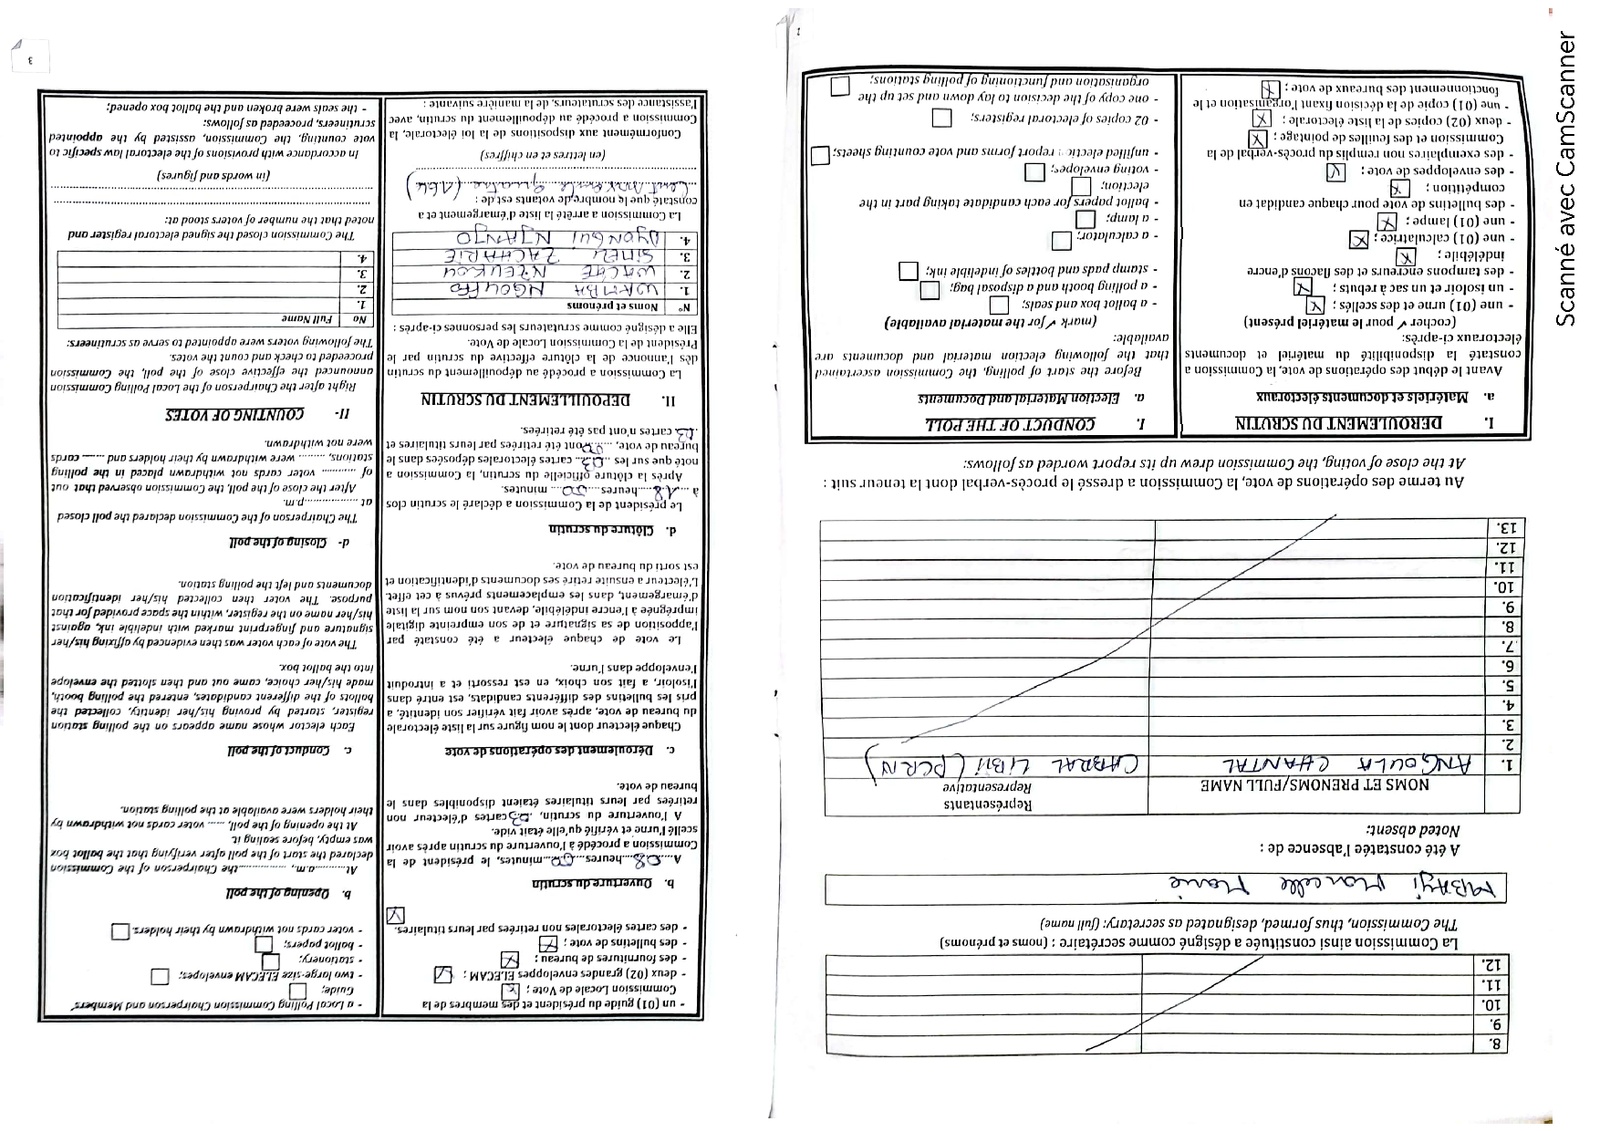 8.
9.
10.
11.
12.
La Commission ainsi constituée a désigné comme secrétaire : (noms et prénoms)
The Commission, thus formed, designated as secretary: (full name)
MBAYI Marcelle Marie
A été constatée l'absence de :
Noted absent:
NOMS ET PRENOMS/FULL NAME
Représentants
Representative
1. ANGOULA CHANTAL CABRAL LIBII (PCRN)
2.
3.
4.
5.
6.
7.
8.
9.
10.
11.
12.
13.
Au terme des opérations de vote, la Commission a dressé le procès-verbal dont la teneur suit :
At the close of voting, the Commission drew up its report worded as follows:
I. DEROULEMENT DU SCRUTIN
a. Matériels et documents électoraux
Avant le début des opérations de vote, la Commission a
constaté la disponibilité du matériel et documents
électoraux ci-après:
(cocher ✓ pour le matériel présent)
- une (01) urne et des scellés ;
- un isoloir et un sac à rebuts ;
- des tampons encreurs et des flacons d'encre
indélébile ;
- une (01) calculatrice ;
- une (01) lampe ;
- des bulletins de vote pour chaque candidat en
compétition ;
- des enveloppes de vote ;
- des exemplaires non remplis du procès-verbal de la
Commission et des feuilles de pointage ;
- deux (02) copies de la liste électorale ;
- une (01) copie de la décision fixant l'organisation et le
fonctionnement des bureaux de vote ;
I. CONDUCT OF THE POLL
a. Election Material and Documents
Before the start of polling, the Commission ascertained
that the following election material and documents are
available:
(mark ✓ for the material available)
- a ballot box and seals;
- a polling booth and a disposal bag;
- stamp pads and bottles of indelible ink;
- a calculator;
- a lamp;
- ballot papers for each candidate taking part in the
election;
- voting envelopes;
- unfilled report forms and vote counting sheets;
- 02 copies of electoral registers;
- one copy of the decision to lay down and set up the
organisation and functioning of polling stations;
- un (01) guide du président et des membres de la
Commission Locale de Vote ;
- deux (02) grandes enveloppes ELECAM ;
- des fournitures de bureau ;
- des bulletins de vote ;
- des cartes électorales non retirées par leurs titulaires.
b. Ouverture du scrutin
A 08 heures 00 minutes, le président de la
Commission a procédé à l'ouverture du scrutin après avoir
scellé l'urne et vérifié qu'elle était vide.
A l'ouverture du scrutin, 03 cartes d'électeur non
retirées par leurs titulaires étaient disponibles dans le
bureau de vote.
c. Déroulement des opérations de vote
Chaque électeur dont le nom figure sur la liste électorale
du bureau de vote, après avoir fait vérifier son identité, a
pris les bulletins des différents candidats, est entré dans
l'isoloir, a fait son choix, en est ressorti et a introduit
l'enveloppe dans l'urne.
Le vote de chaque électeur a été constaté par
l'apposition de sa signature et de son empreinte digitale
imprégnée à l'encre indélébile, devant son nom sur la liste
d'émargement, dans les emplacements prévus à cet effet.
L'électeur a ensuite retiré ses documents d'identification et
est sorti du bureau de vote.
d. Clôture du scrutin
Le président de la Commission a déclaré le scrutin clos
à 18 heures 00 minutes.
Après la clôture officielle du scrutin, la Commission a
noté que sur les 03 cartes électorales déposées dans le
bureau de vote, 00 ont été retirées par leurs titulaires et
03 cartes n'ont pas été retirées.
II. DEPOUILLEMENT DU SCRUTIN
La Commission a procédé au dépouillement du scrutin
dès l'annonce de la clôture effective du scrutin par le
Président de la Commission Locale de Vote.
Elle a désigné comme scrutateurs les personnes ci-après :
N° Noms et prénoms
1. WAMBA NGOUFFO
2. WACHE NZEUKOU
3. SIMEU ZACHARIE
4. DJONGUI NJANJO
La Commission a arrêté la liste d'émargement et a
constaté que le nombre de votants est de :
Cent soixante quatre (164)
(en lettres et en chiffres)
Conformément aux dispositions de la loi électorale, la
Commission a procédé au dépouillement du scrutin, avec
l'assistance des scrutateurs, de la manière suivante :
- a Local Polling Commission Chairperson and Members'
Guide;
- two large-size ELECAM envelopes;
- stationery;
- ballot papers;
- voter cards not withdrawn by their holders.
b. Opening of the poll
At a.m, the Chairperson of the Commission
declared the start of the poll after verifying that the ballot box
was empty, before sealing it.
At the opening of the poll, voter cards not withdrawn by
their holders were available at the polling station.
c. Conduct of the poll
Each elector whose name appears on the polling station
register, started by proving his/her identity, collected the
ballots of the different candidates, entered the polling booth,
made his/her choice, came out and then slotted the envelope
into the ballot box.
The vote of each voter was then evidenced by affixing his/her
signature and fingerprint marked with indelible ink, against
his/her name on the register, within the space provided for that
purpose. The voter then collected his/her identification
documents and left the polling station.
d- Closing of the poll
The Chairperson of the Commission declared the poll closed
at p.m.
After the close of the poll, the Commission observed that out
of voter cards not withdrawn placed in the polling
stations, were withdrawn by their holders and cards
were not withdrawn.
II- COUNTING OF VOTES
Right after the Chairperson of the Local Polling Commission
announced the effective close of the poll, the Commission
proceeded to check and count the votes.
The following voters were appointed to serve as scrutineers:
No Full Name
1.
2.
3.
4.
The Commission closed the signed electoral register and
noted that the number of voters stood at:
(in words and figures)
In accordance with provisions of the electoral law specific to
vote counting, the Commission, assisted by the appointed
scrutineers, proceeded as follows:
- the seals were broken and the ballot box opened;
3
Scanné avec CamScanner